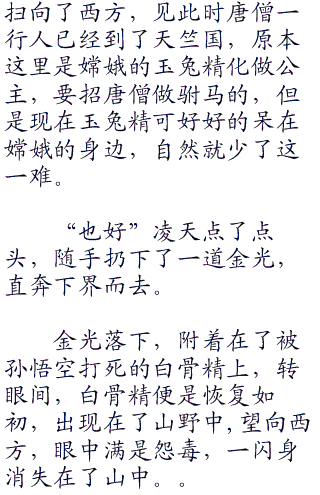 扫向了西方，见此时唐僧一
行人已经到了天竺国，原本
这里是嫦娥的玉兔精化做公
主，要招唐僧做驸马的，但
是现在玉兔精可好好的呆在
嫦娥的身边，自然就少了这
一难。
“也好”凌天点了点
头，随手扔下了一道金光，
直奔下界而去。
金光落下，附着在了被
孙悟空打死的白骨精上，转
眼间，白骨精便是恢复如
初，出现在了山野中,望向西
方，眼中满是怨毒，一闪身
消失在了山中。。